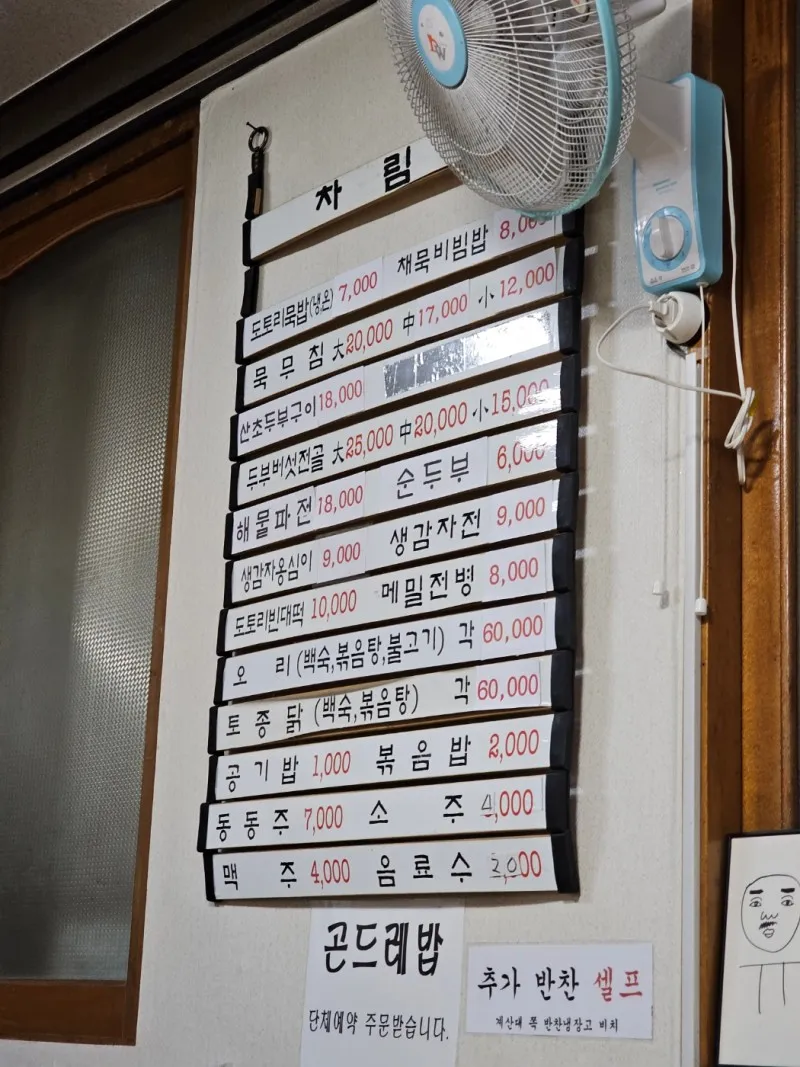 차 림
도토리묵밥(냉,온) 7,000 채묵비빔밥 8,000
묵 무 침 大20,000 中17,000 小12,000
산초두부구이 18,000
두부버섯전골 大25,000 中20,000 小15,000
해물파전 18,000 순두부 6,000
생감자옹심이 9,000 생감자전 9,000
도토리빈대떡 10,000 메밀전병 8,000
오 리 (백숙,볶음탕,불고기) 각 60,000
토종닭 (백숙,볶음탕) 각 60,000
공기밥 1,000 볶음밥 2,000
동동주 7,000 소 주 4,000
맥 주 4,000 음료수
곤드레밥
단체예약 주문받습니다.
추가 반찬 셀프
계산대 쪽 반찬냉장고 비치